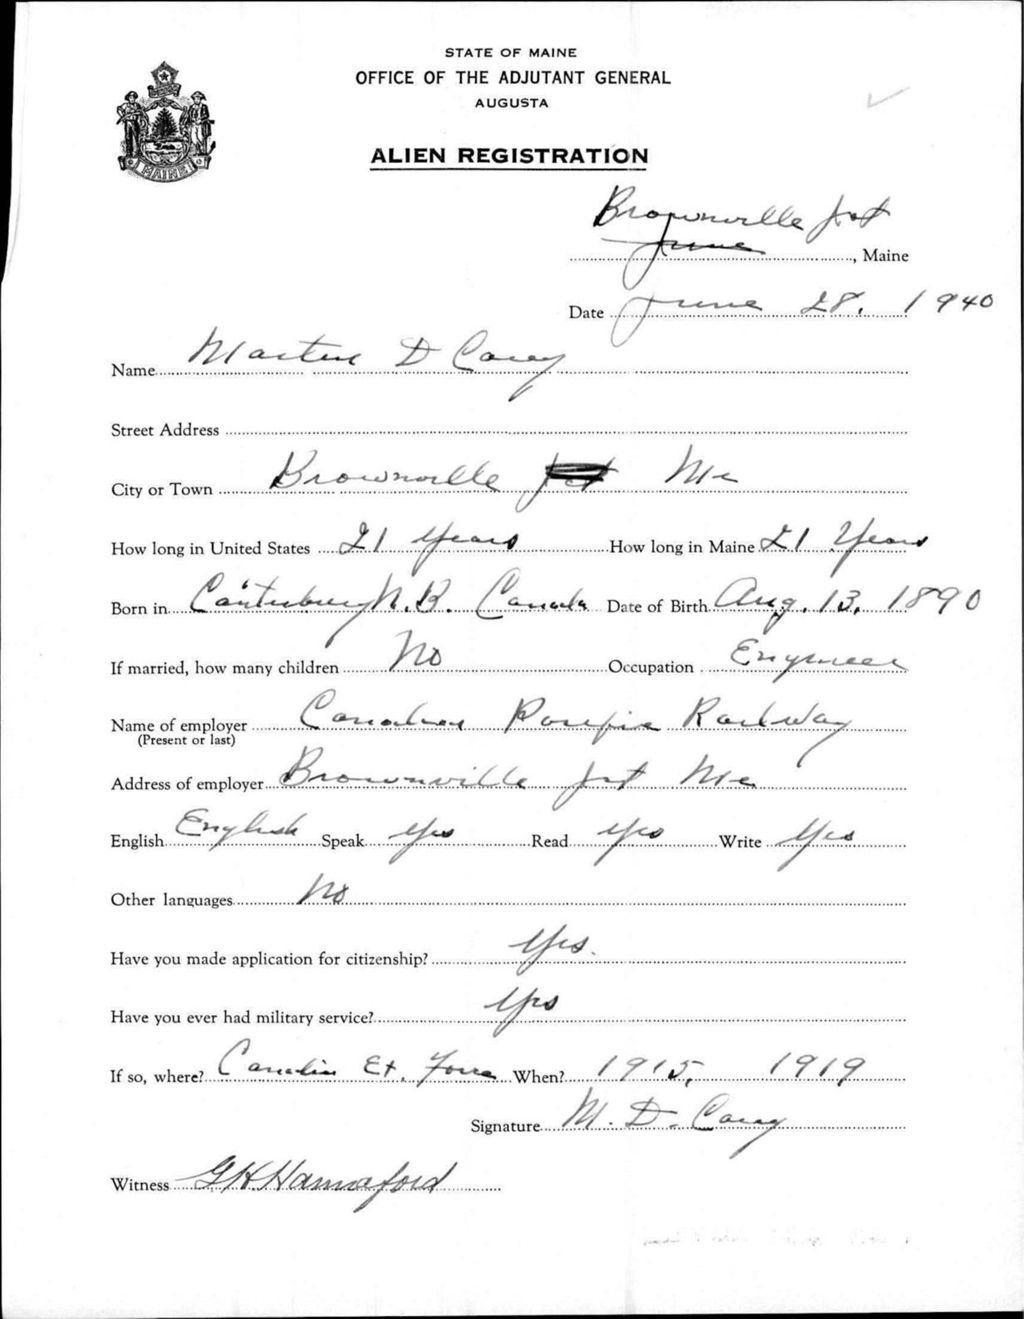 STATE OF MAINE
OFFICE OF THE ADJUTANT GENERAL
AUGUSTA
ALIEN REGISTRATION
MAINE
Brownville Jct
June, Maine
Date June 28, 1940
Name Martin D Carey
Street Address
City or Town Brownville Jct Me
How long in United States 21 Years How long in Maine 21 Years
Born in Canterbury N.B. Canada Date of Birth Aug. 13, 1890
If married, how many children No Occupation Engineer
Name of employer Canadian Pacific Railway
(Present or last)
Address of employer Brownville Jct Me
English English Speak Yes Read Yes Write Yes
Other languages No
Have you made application for citizenship? Yes.
Have you ever had military service? Yes
If so, where? Canadin Ex. Force When? 1915, 1919
Signature M. D. Carey
Witness G H Hannaford